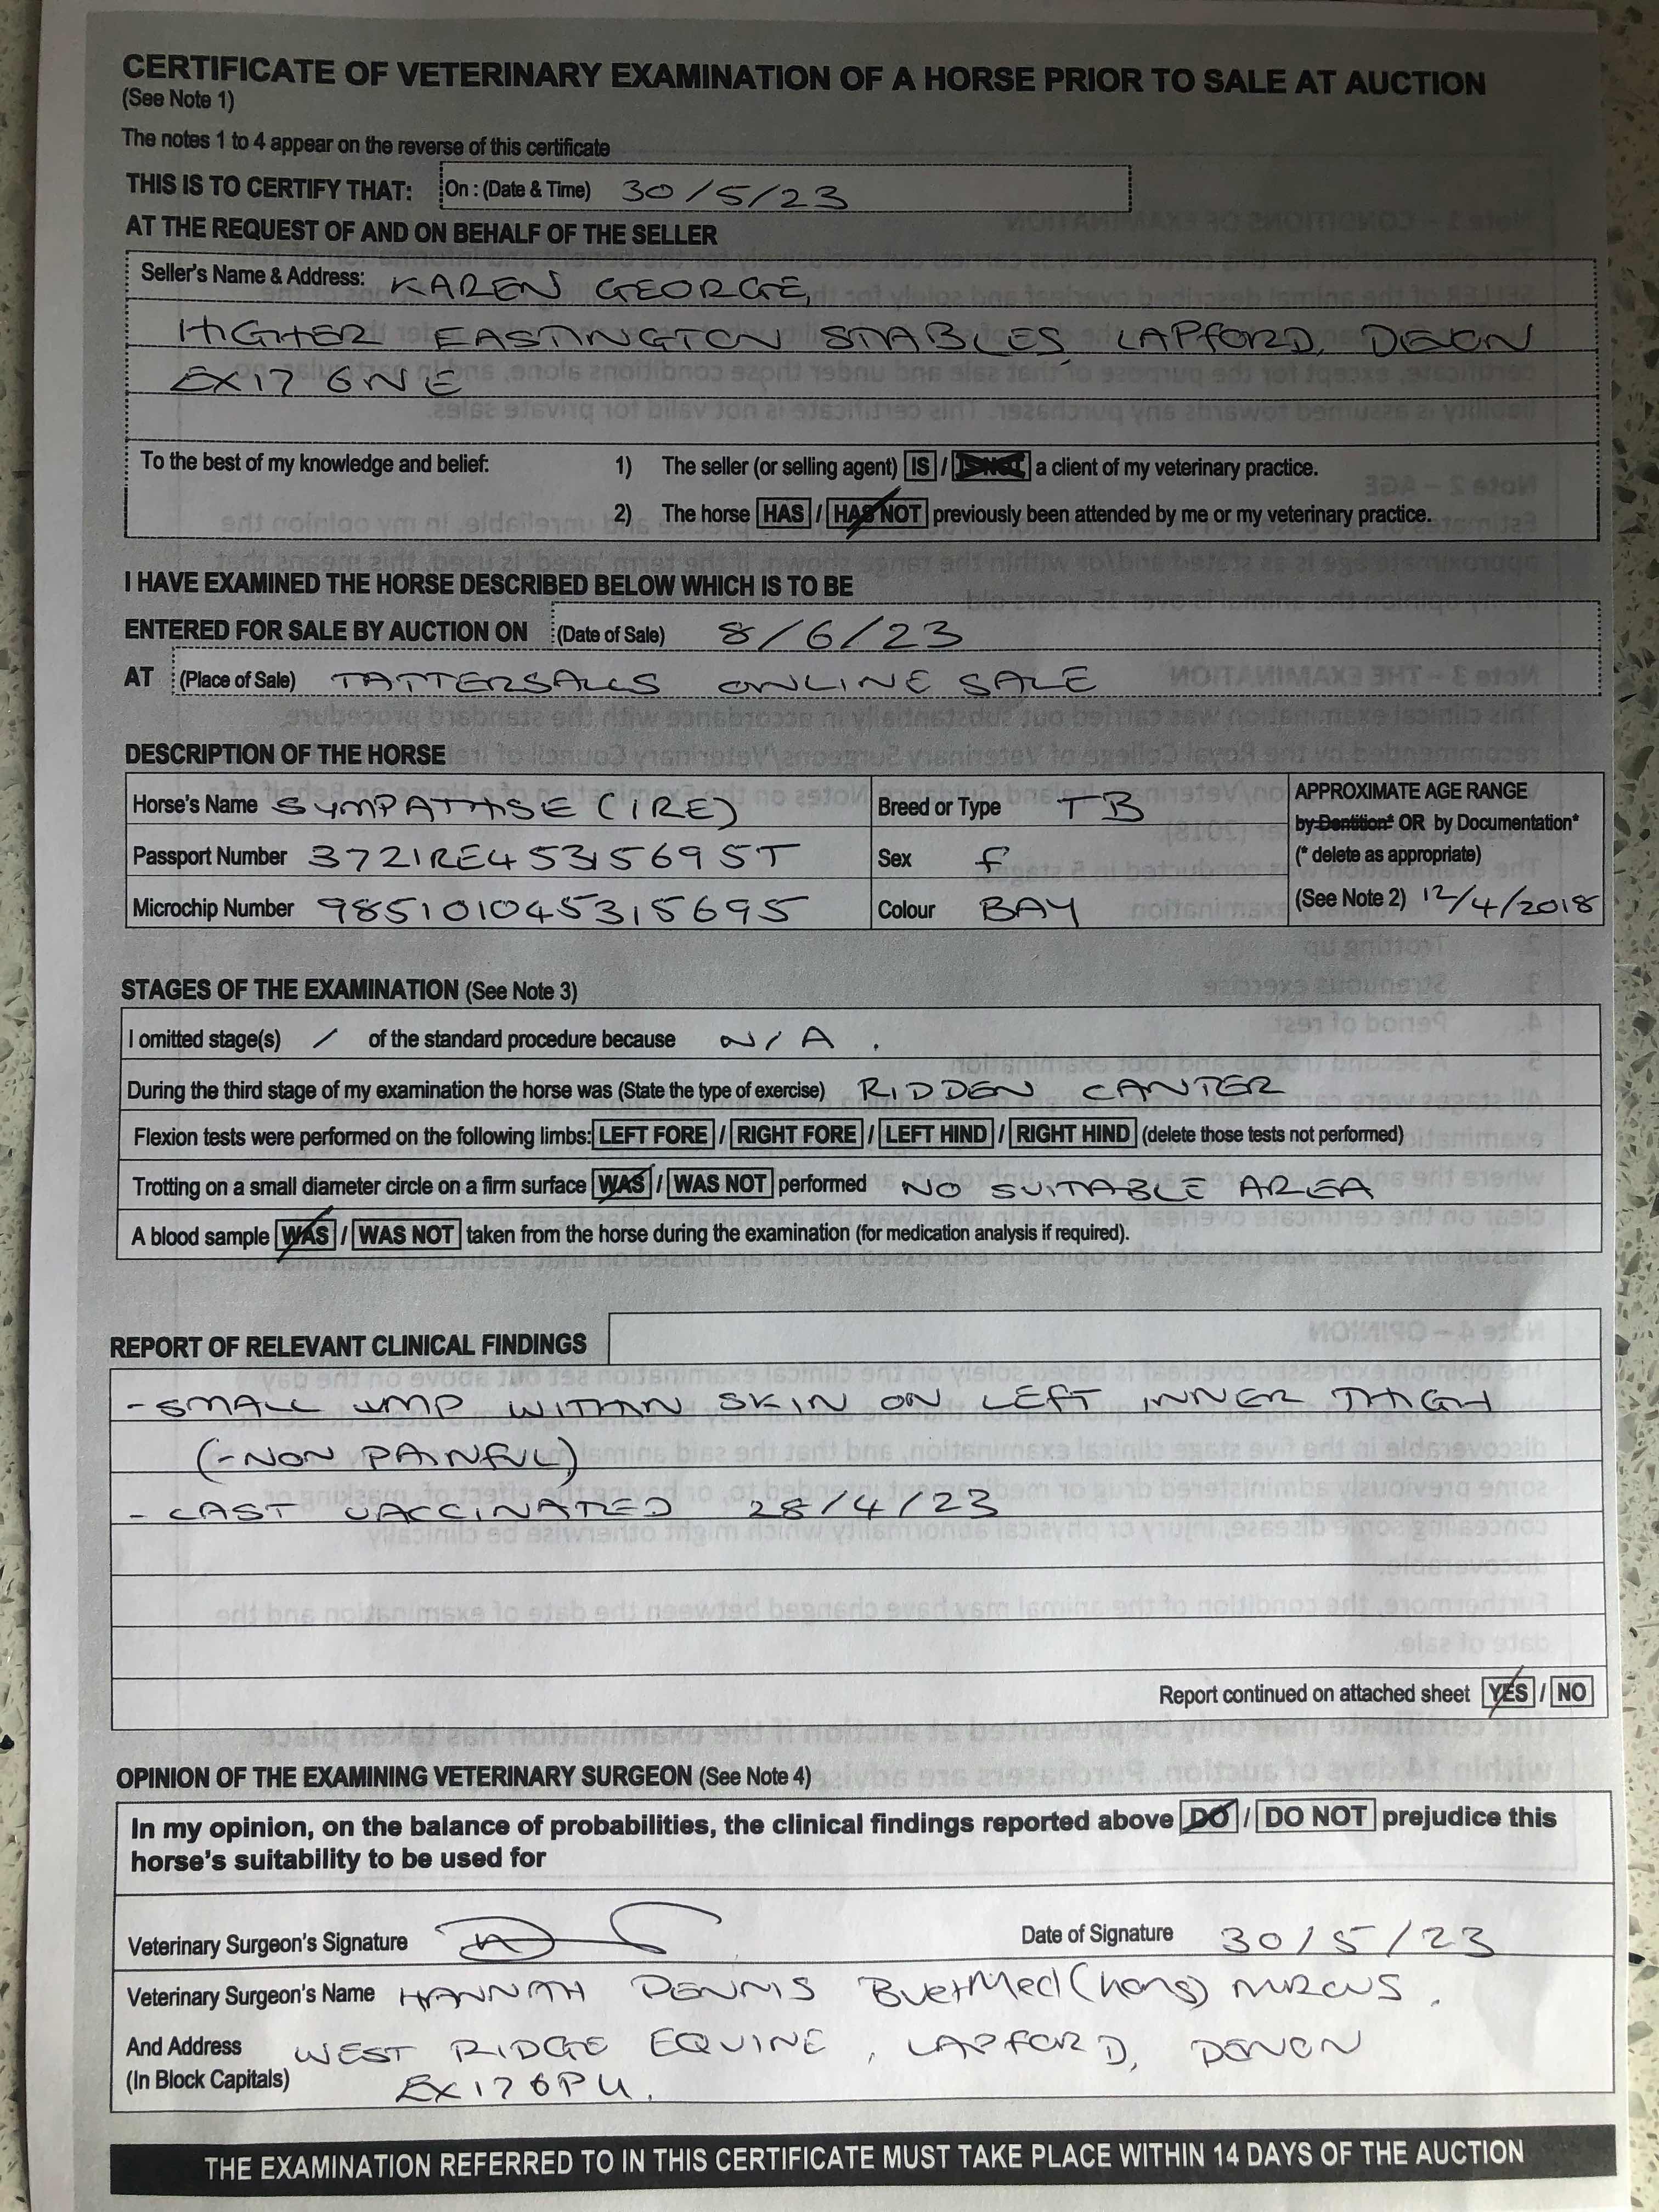 CERTIFICATE OF VETERINARY EXAMINATION OF A HORSE PRIOR TO SALE AT AUCTION
(See Note 1)
The notes 1 to 4 appear on the reverse of this certificate
THIS IS TO CERTIFY THAT: On : (Date & Time) 30/5/23
AT THE REQUEST OF AND ON BEHALF OF THE SELLER
Seller's Name & Address: KAREN GEORGE,
HIGHER EASTINGTON STABLES, LAPFORD, DEVON
EX17 6NE
To the best of my knowledge and belief: 1) The seller (or selling agent) IS / IS NOT a client of my veterinary practice.
2) The horse HAS / HAS NOT previously been attended by me or my veterinary practice.
I HAVE EXAMINED THE HORSE DESCRIBED BELOW WHICH IS TO BE
ENTERED FOR SALE BY AUCTION ON (Date of Sale) 8/6/23
AT (Place of Sale) TATTERSALLS ONLINE SALE
DESCRIPTION OF THE HORSE
Horse's Name SYMPATHISE (IRE) Breed or Type TB APPROXIMATE AGE RANGE
by Dentition* OR by Documentation*
Passport Number 372IRE45315695T Sex F (* delete as appropriate)
Microchip Number 985101045315695 Colour BAY (See Note 2) 12/4/2018
STAGES OF THE EXAMINATION (See Note 3)
I omitted stage(s) / of the standard procedure because N/A .
During the third stage of my examination the horse was (State the type of exercise) RIDDEN CANTER
Flexion tests were performed on the following limbs: LEFT FORE / RIGHT FORE / LEFT HIND / RIGHT HIND (delete those tests not performed)
Trotting on a small diameter circle on a firm surface WAS / WAS NOT performed NO SUITABLE AREA
A blood sample WAS / WAS NOT taken from the horse during the examination (for medication analysis if required).
REPORT OF RELEVANT CLINICAL FINDINGS
- SMALL LUMP WITHIN SKIN ON LEFT INNER THIGH
(- NON PAINFUL)
- LAST VACCINATED 28/4/23
Report continued on attached sheet YES / NO
OPINION OF THE EXAMINING VETERINARY SURGEON (See Note 4)
In my opinion, on the balance of probabilities, the clinical findings reported above DO / DO NOT prejudice this
horse's suitability to be used for
Veterinary Surgeon's Signature Date of Signature 30/5/23
Veterinary Surgeon's Name HANNAH DENNIS BVetMed (hons) MRCVS.
And Address WEST RIDGE EQUINE, LAPFORD, DEVON
(In Block Capitals) EX17 6PU.
THE EXAMINATION REFERRED TO IN THIS CERTIFICATE MUST TAKE PLACE WITHIN 14 DAYS OF THE AUCTION